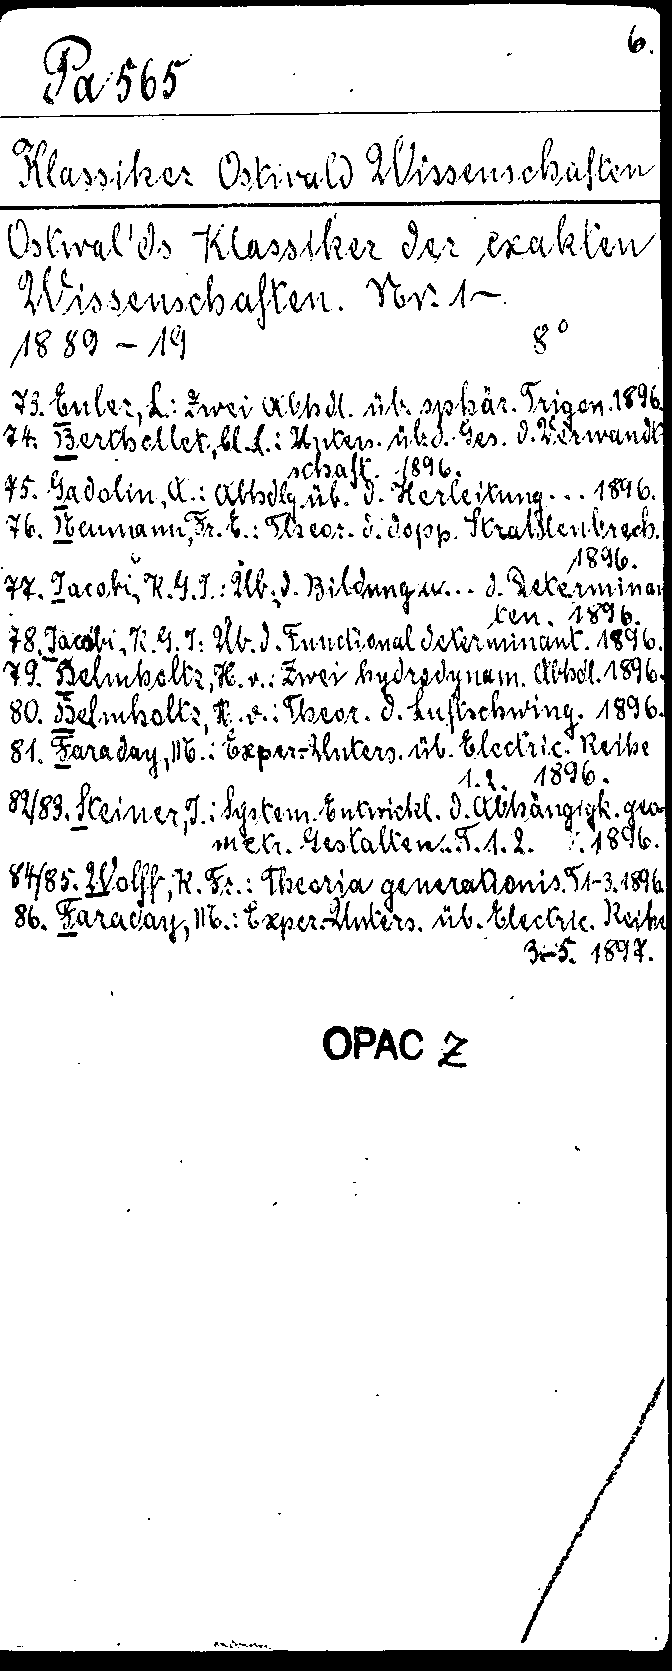 6.
Pa 565
Klassiker Ostwald Wissenschaften
Ostwal'ds Klassiker der exakten
Wissenschaften. Nr. 1-
1889 - 19 8°
73. Euler, L.: Zwei Abhdl. üb. sphär. Trigon. 1896.
74. Berthollet, Cl. L.: Unters. üb. d. Ges. d. Verwandt
schaft. 1896.
75. Gadolin, A.: Abhdlg. üb. d. Herleitung... 1896.
76. Neumann, Fr. E.: Theor. d. dopp. Strahlenbrech.
1896.
77. Jacobi, K. G. J.: Üb. d. Bildung u... d. Determinan
ten. 1896.
78. Jacobi, K. G. J.: Üb. d. Functionaldeterminant. 1896.
79. Helmholtz, H. v.: Zwei hydrodynam. Abhdl. 1896.
80. Helmholtz, H. v.: Theor. d. Luftschwing. 1896.
81. Faraday, M.: Exper.-Unters. üb. Electric. Reihe
1.2. 1896.
82/83. Steiner, J.: System. Entwickl. d. Abhängigk. geo
metr. Gestalten.. T. 1. 2. 1896.
84/85. Wolff, K. Fr.: Theoria generationis. T 1-3. 1896.
86. Faraday, M.: Exper.-Unters. üb. Electric. Reihe
3-5. 1897.
OPAC Z